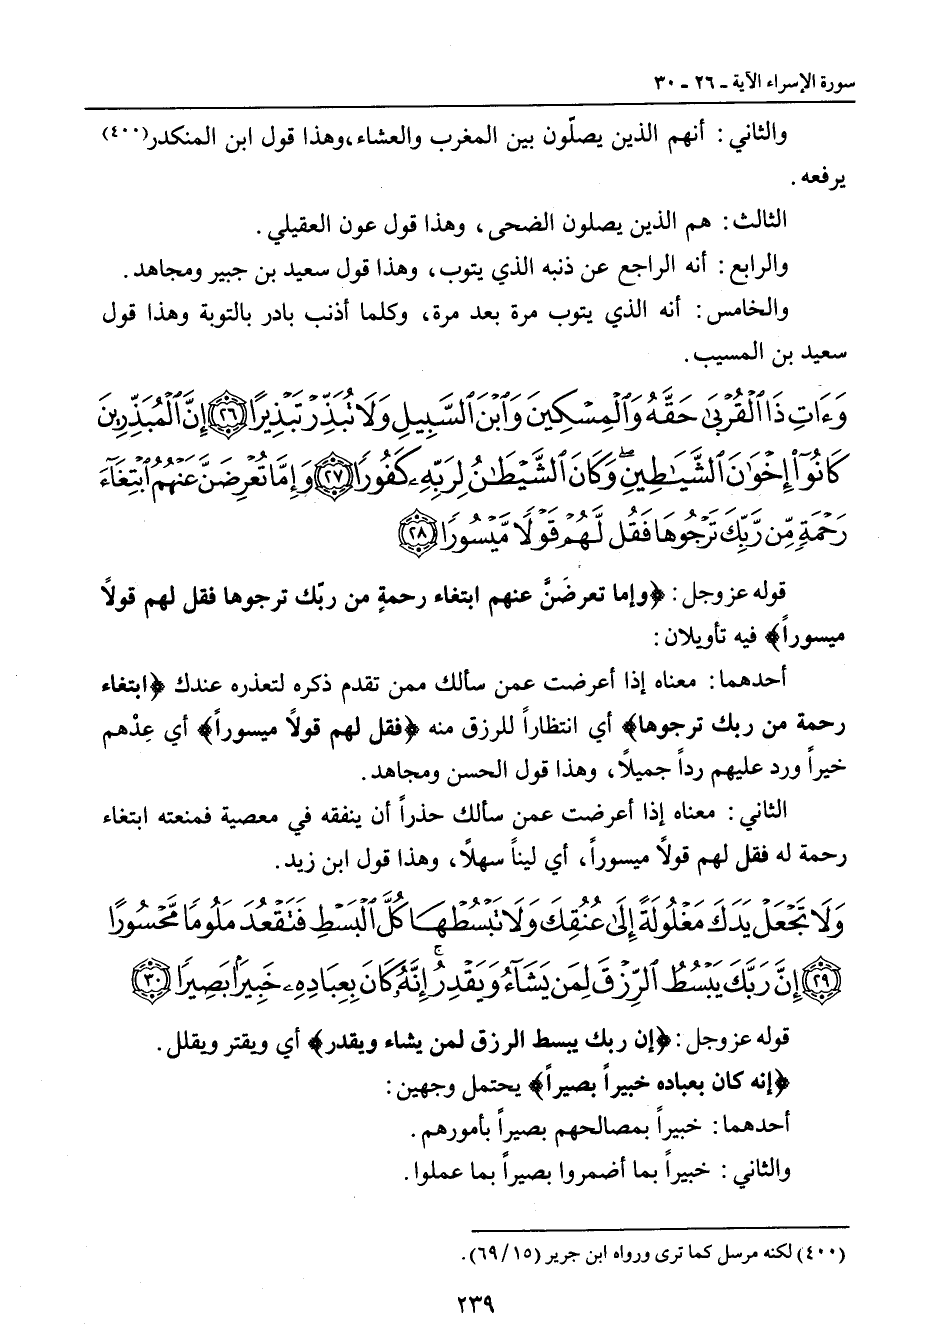 سورة الإسراء الآية ـ ٢٦ ـ ٣٠
والثاني : أنهم الذين يصلّون بين المغرب والعشاء،وهذا قول ابن المنكدر(٤٠٠)
يرفعه .
الثالث : هم الذين يصلون الضحى، وهذا قول عون العقيلي .
والرابع : أنه الراجع عن ذنبه الذي يتوب، وهذا قول سعيد بن جبير ومجاهد .
والخامس : أنه الذي يتوب مرة بعد مرة، وكلما أذنب بادر بالتوبة وهذا قول
سعيد بن المسيب .
وَءَاتِ ذَا ٱلْقُرْبَىٰ حَقَّهُۥ وَٱلْمِسْكِينَ وَٱبْنَ ٱلسَّبِيلِ وَلَا تُبَذِّرْ تَبْذِيرًا ٢٦ إِنَّ ٱلْمُبَذِّرِينَ
كَانُوٓا۟ إِخْوَٰنَ ٱلشَّيَٰطِينِ ۖ وَكَانَ ٱلشَّيْطَٰنُ لِرَبِّهِۦ كَفُورًا ٢٧ وَإِمَّا تُعْرِضَنَّ عَنْهُمُ ٱبْتِغَآءَ
رَحْمَةٍ مِّن رَّبِّكَ تَرْجُوهَا فَقُل لَّهُمْ قَوْلًا مَّيْسُورًا ٢٨
قوله عز وجل : ﴿وإما تعرضَنَّ عنهم ابتغاء رحمةٍ من ربّك ترجوها فقل لهم قولاً
ميسوراً﴾ فيه تأويلان :
أحدهما : معناه إذا أعرضت عمن سألك ممن تقدم ذكره لتعذره عندك ﴿ابتغاء
رحمة من ربك ترجوها﴾ أي انتظاراً للرزق منه ﴿فقل لهم قولاً ميسوراً﴾ أي عِدْهم
خيراً ورد عليهم رداً جميلاً، وهذا قول الحسن ومجاهد .
الثاني : معناه إذا أعرضت عمن سألك حذراً أن ينفقه في معصية فمنعته ابتغاء
رحمة له فقل لهم قولاً ميسوراً، أي ليناً سهلاً، وهذا قول ابن زيد .
وَلَا تَجْعَلْ يَدَكَ مَغْلُولَةً إِلَىٰ عُنُقِكَ وَلَا تَبْسُطْهَا كُلَّ ٱلْبَسْطِ فَتَقْعُدَ مَلُومًا مَّحْسُورًا
٢٩ إِنَّ رَبَّكَ يَبْسُطُ ٱلرِّزْقَ لِمَن يَشَآءُ وَيَقْدِرُ ۚ إِنَّهُۥ كَانَ بِعِبَادِهِۦ خَبِيرًۢا بَصِيرًا ٣٠
قوله عز وجل : ﴿إن ربك يبسط الرزق لمن يشاء ويقدر﴾ أي ويقتر ويقلل .
﴿إنه كان بعباده خبيراً بصيراً﴾ يحتمل وجهين :
أحدهما : خبيراً بمصالحهم بصيراً بأمورهم .
والثاني : خبيراً بما أضمروا بصيراً بما عملوا .
(٤٠٠) لكنه مرسل كما ترى ورواه ابن جرير (٦٩/١٥) .
٢٣٩